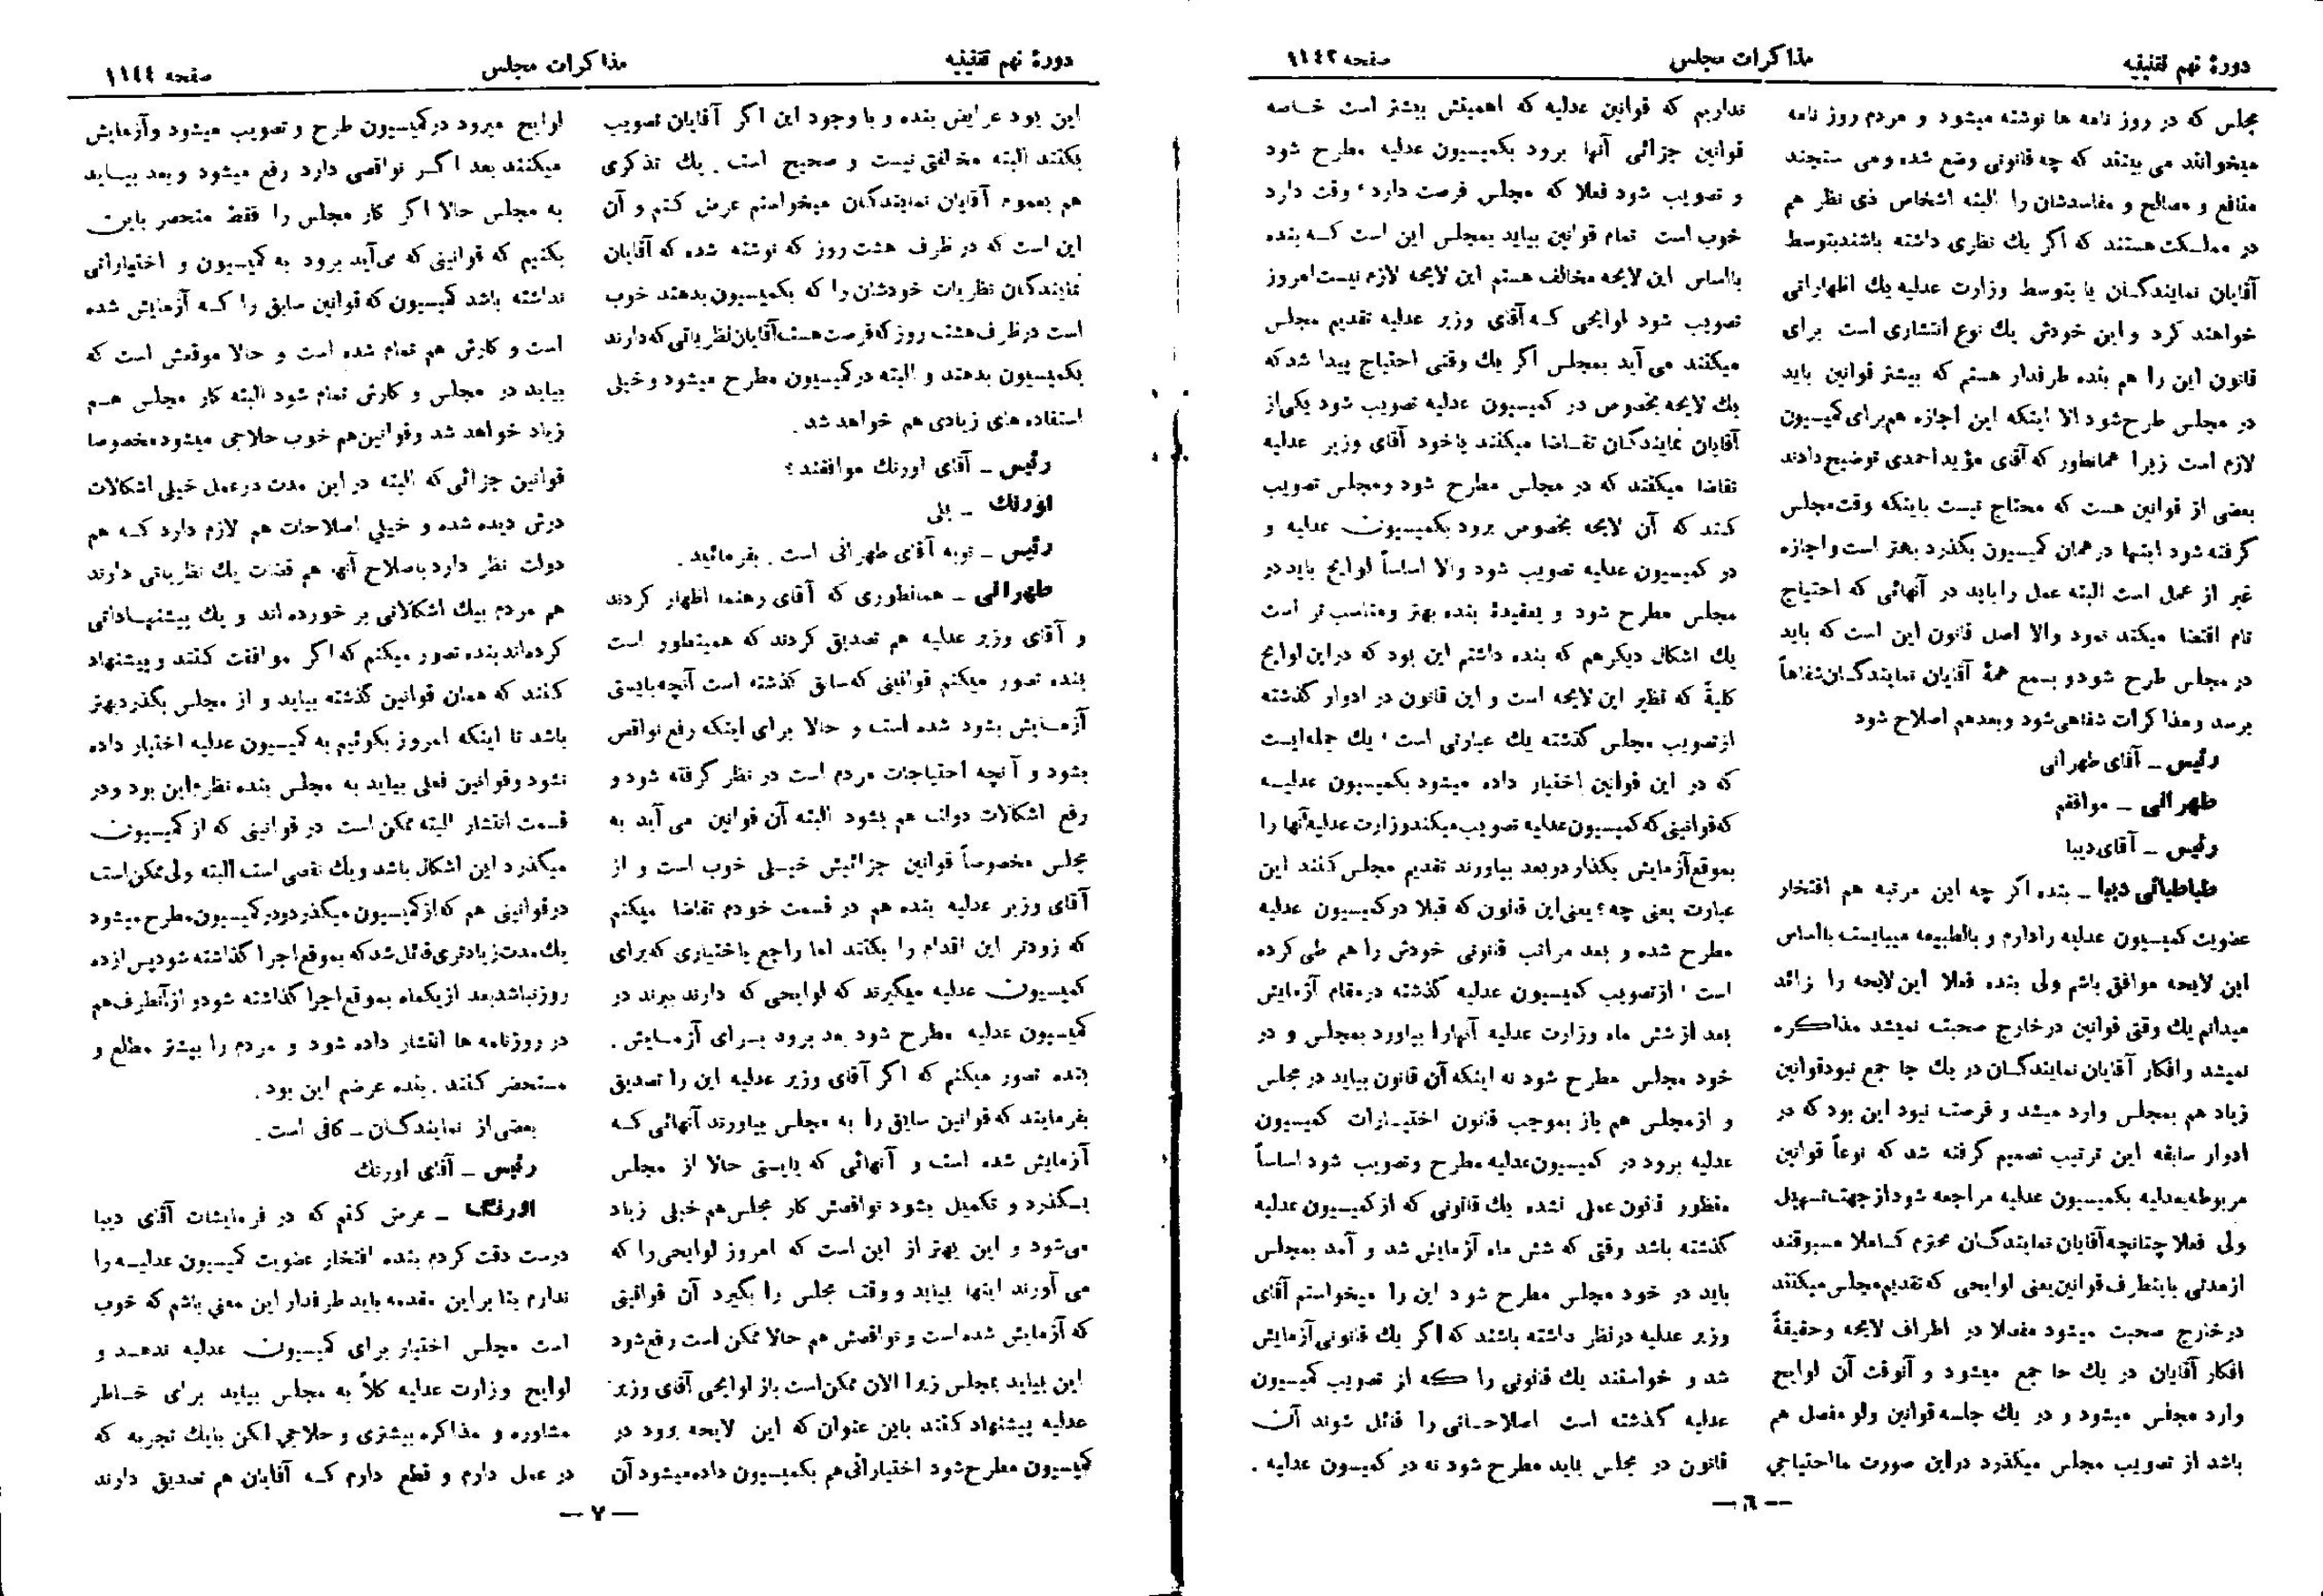 دورهٔ نهم تقنینیه
مذاکرات مجلس
صفحه ۱۱۴۳
مجلس که در روز نامه ها نوشته میشود و مردم روز نامه
میخوانند می بینند که چه قانونی وضع شده و می سنجند
منافع و مصالح و مفاسدشان را البته اشخاص ذی نظر هم
در مملکت هستند که اگر یك نظری داشته باشند بتوسط
آقایان نمایندگان یا بتوسط وزارت عدلیه یك اظهاراتی
خواهند کرد و این خودش یك نوع انتشاری است برای
قانون این را هم بنده طرفدار هستم که بیشتر قوانین باید
در مجلس طرح شود الا اینکه این اجازه هم برای کمیسیون
لازم است زیرا همانطور که آقای مؤید احمدی توضیح دادند
بعضی از قوانین هست که محتاج نیست باینکه وقت مجلس
گرفته شود اینها در همان کمیسیون بگذرد بهتر است و اجازه
غیر از عمل است البته عمل را باید در آنهائی که احتیاج
تام اقتضا میکند نمود والا اصل قانون این است که باید
در مجلس طرح شود و بسمع همهٔ آقایان نمایندگان شفاهاً
برسد و مذاکرات شفاهی شود و بعد هم اصلاح شود
رئیس ـ آقای طهرانی
طهرانی ـ موافقم
رئیس ـ آقای دیبا
طباطبائی دیبا ـ بنده اگر چه این مرتبه هم افتخار
عضویت کمیسیون عدلیه را دارم و بالطبیعه میبایست بااساس
این لایحه موافق باشم ولی بنده فعلا این لایحه را زائد
میدانم یك وقتی قوانین در خارج صحبت نمیشد مذاکره
نمیشد و افکار آقایان نمایندگان در یك جا جمع نبود قوانین
زیاد هم بمجلس وارد میشد و فرصت نبود این بود که در
ادوار سابقه این ترتیب تصمیم گرفته شد که نوعاً قوانین
مربوطه بعدلیه بکمیسیون عدلیه مراجعه شود از جهت تسهیل
ولی فعلا چنانچه آقایان نمایندگان محترم کاملا مسبوقند
از مدتی باینطرف قوانین یعنی لوایحی که تقدیم مجلس میکنند
در خارج صحبت میشود مفصلا در اطراف لایحه و حقیقةً
افکار آقایان در یك جا جمع میشود و آنوقت آن لوایح
وارد مجلس میشود و در یك جلسه قوانین ولو مفصل هم
باشد از تصویب مجلس میگذرد در این صورت ما احتیاجی
نداریم که قوانین عدلیه که اهمیتش بیشتر است خاصه
قوانین جزائی آنها برود بکمیسیون عدلیه مطرح شود
و تصویب شود فعلا که مجلس فرصت دارد، وقت دارد
خوب است تمام قوانین بیاید بمجلس این است که بنده
بااساس این لایحه مخالف هستم این لایحه لازم نیست امروز
تصویب شود لوایحی که آقای وزیر عدلیه تقدیم مجلس
میکنند می آید بمجلس اگر یك وقتی احتیاج پیدا شد که
یك لایحه بخصوص در کمیسیون عدلیه تصویب شود یکی از
آقایان نمایندگان تقاضا میکنند یا خود آقای وزیر عدلیه
تقاضا میکنند که در مجلس مطرح شود و مجلس تصویب
کند که آن لایحه بخصوص برود بکمیسیون عدلیه و
در کمیسیون عدلیه تصویب شود والا اساساً لوایح باید در
مجلس مطرح شود و بعقیدهٔ بنده بهتر و مناسب تر است
یك اشکال دیگر هم که بنده داشتم این بود که در این لوایح
کلیةً که نظیر این لایحه است و این قانون در ادوار گذشته
از تصویب مجلس گذشته یك عبارتی است، یك جمله‌ایست
که در این قوانین اختیار داده میشود بکمیسیون عدلیه
که قوانینی که کمیسیون عدلیه تصویب میکند وزارت عدلیه آنها را
بموقع آزمایش بگذارد و بعد بیاورند تقدیم مجلس کنند این
عبارت یعنی چه؟ یعنی این قانون که قبلا در کمیسیون عدلیه
مطرح شده و بعد مراتب قانونی خودش را هم طی کرده
است، از تصویب کمیسیون عدلیه گذشته در مقام آزمایش
بعد از شش ماه وزارت عدلیه آنها را بیاورد بمجلس و در
خود مجلس مطرح شود نه اینکه آن قانون بیاید در مجلس
و از مجلس هم باز بموجب قانون اختیارات کمیسیون
عدلیه برود در کمیسیون عدلیه مطرح و تصویب شود اساساً
منظور قانون عملی نشده یك قانونی که از کمیسیون عدلیه
گذشته باشد وقتی که شش ماه آزمایش شد و آمد بمجلس
باید در خود مجلس مطرح شود این را میخواستم آقای
وزیر عدلیه در نظر داشته باشند که اگر یك قانونی آزمایش
شد و خواستند یك قانونی را که از تصویب کمیسیون
عدلیه گذشته است اصلاحاتی را قائل شوند آن
قانون در مجلس باید مطرح شود نه در کمیسون عدلیه .
— ٦ —
دورهٔ نهم تقنینیه
مذاکرات مجلس
صفحه ۱۱٤٤
این بود عرایض بنده و با وجود این اگر آقایان تصویب
بکنند البته مخالفتی نیست و صحیح است . یك تذکری
هم بعموم آقایان نمایندگان میخواستم عرض کنم و آن
این است که در ظرف هشت روز که نوشته شده که آقایان
نمایندگان نظریات خودشان را که بکمیسیون بدهند خوب
است در ظرف هشت روز که فرصت هست آقایان نظریاتی که دارند
بکمیسیون بدهند و البته در کمیسیون مطرح میشود و خیلی
استفاده های زیادی هم خواهد شد .
رئیس ـ آقای اورنك موافقند؟
اورنك ـ بلی
رئیس ـ نوبه آقای طهرانی است . بفرمائید .
طهرانی ـ همانطوری که آقای رهنما اظهار کردند
و آقای وزیر عدلیه هم تصدیق کردند که همینطور است
بنده تصور میکنم قوانینی که سابق گذشته است آنچه بایستی
آزمایش بشود شده است و حالا برای اینکه رفع نواقص
بشود و آنچه احتیاجات مردم است در نظر گرفته شود و
رفع اشکالات دولت هم بشود البته آن قوانین می آید به
مجلس مخصوصاً قوانین جزائیش خیلی خوب است و از
آقای وزیر عدلیه بنده هم در قسمت خودم تقاضا میکنم
که زودتر این اقدام را بکنند اما راجع باختیاری که برای
کمیسیون عدلیه میگیرند که لوایحی که دارند ببرند در
کمیسیون عدلیه مطرح شود بعد برود برای آزمایش .
بنده تصور میکنم که اگر آقای وزیر عدلیه این را تصدیق
بفرمایند که قوانین سابق را به مجلس بیاورند آنهائی که
آزمایش شده است و آنهائی که بایستی حالا از مجلس
بگذرد و تکمیل بشود نواقصش کار مجلس هم خیلی زیاد
می‌شود و این بهتر از این است که امروز لوایحی را که
می آورند اینها بیاید و وقت مجلس را بگیرد آن قوانینی
که آزمایش شده است و نواقصش هم حالا ممکن است رفع شود
این بیاید بمجلس زیرا الان ممکن است باز لوایحی آقای وزیر
عدلیه پیشنهاد کنند باین عنوان که این لایحه برود در
کمیسیون مطرح شود اختیاراتی هم بکمیسیون داده میشود آن
لوایح میرود در کمیسیون طرح و تصویب میشود و آزمایش
میکنند بعد اگر نواقصی دارد رفع میشود و بعد بیاید
به مجلس حالا اگر کار مجلس را فقط منحصر باین
بکنیم که قوانینی که می‌آید برود به کمیسیون و اختیاراتی
نداشته باشد کمیسیون که قوانین سابق را که آزمایش شده
است و کارش هم تمام شده است و حالا موقعش است که
بیاید در مجلس و کارش تمام شود البته کار مجلس هم
زیاد خواهد شد و قوانین هم خوب حلاجی میشود مخصوصا
قوانین جزائی که البته در این مدت در عمل خیلی اشکالات
درش دیده شده و خیلی اصلاحات هم لازم دارد که هم
دولت نظر دارد باصلاح آنها هم قضات یك نظریاتی دارند
هم مردم بیك اشکالاتی بر خورده اند و یك پیشنهاداتی
کرده‌اند بنده تصور میکنم که اگر موافقت کنند و پیشنهاد
کنند که همان قوانین گذشته بیاید و از مجلس بگذرد بهتر
باشد تا اینکه امروز بگوئیم به کمیسیون عدلیه اختیار داده
نشود و قوانین فعلی بیاید به مجلس بنده نظرم این بود و در
قسمت انتشار البته ممکن است در قوانینی که از کمیسیون
میگذرد این اشکال باشد و یك نقصی است البته ولی ممکن است
در قوانینی هم که از کمیسیون میگذرد و در کمیسیون مطرح میشود
یك مدت زیادتری قائل شد که بموقع اجرا گذاشته شود پس از ده
روز نباشد بعد از یکماه بموقع اجرا گذاشته شود و از آنطرف هم
در روزنامه ها انتشار داده شود و مردم را بیشتر مطلع و
مستحضر کنند . بنده عرضم این بود .
بعضی از نمایندگان ـ کافی است .
رئیس ـ آقای اورنك
اورنگ ـ عرض کنم که در فرمایشات آقای دیبا
درست دقت کردم بنده افتخار عضویت کمیسیون عدلیه را
ندارم بنا بر این مقدمه باید طرفدار این معنی باشم که خوب
است مجلس اختیار برای کمیسیون عدلیه ندهد و
لوایح وزارت عدلیه کلاً به مجلس بیاید برای خاطر
مشاوره و مذاکره بیشتری و حلاجی لکن بایك تجربه که
در عمل دارم و قطع دارم که آقایان هم تصدیق دارند
— ۷ —